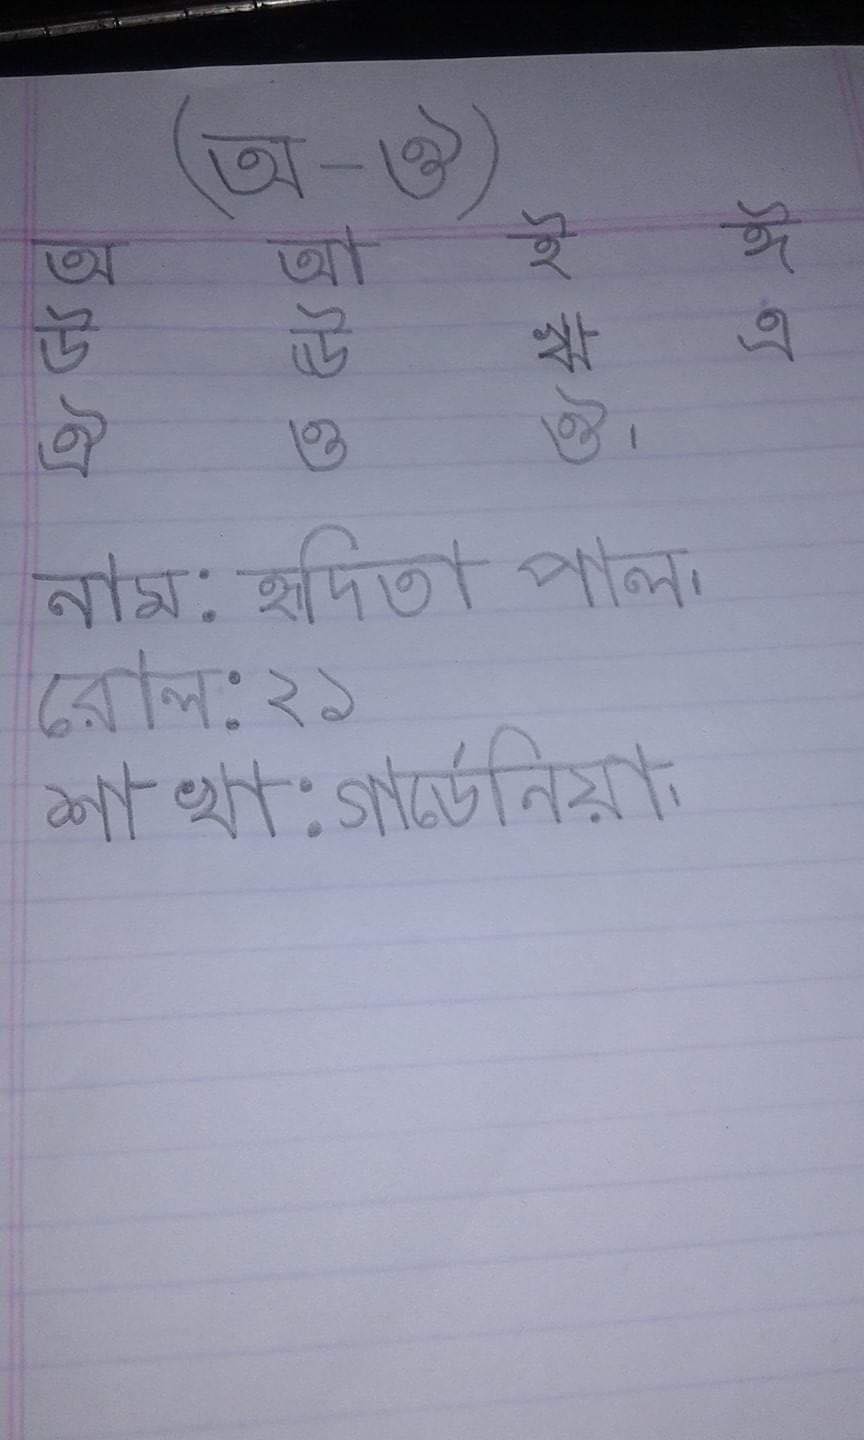 (অ-ঔ)
অ আ ই ঈ
উ ঊ ঋ এ
ঐ ও ঔ।
নাম: হৃদিতা পাল।
রোল: ২১
শাখা: গার্ডেনিয়া।